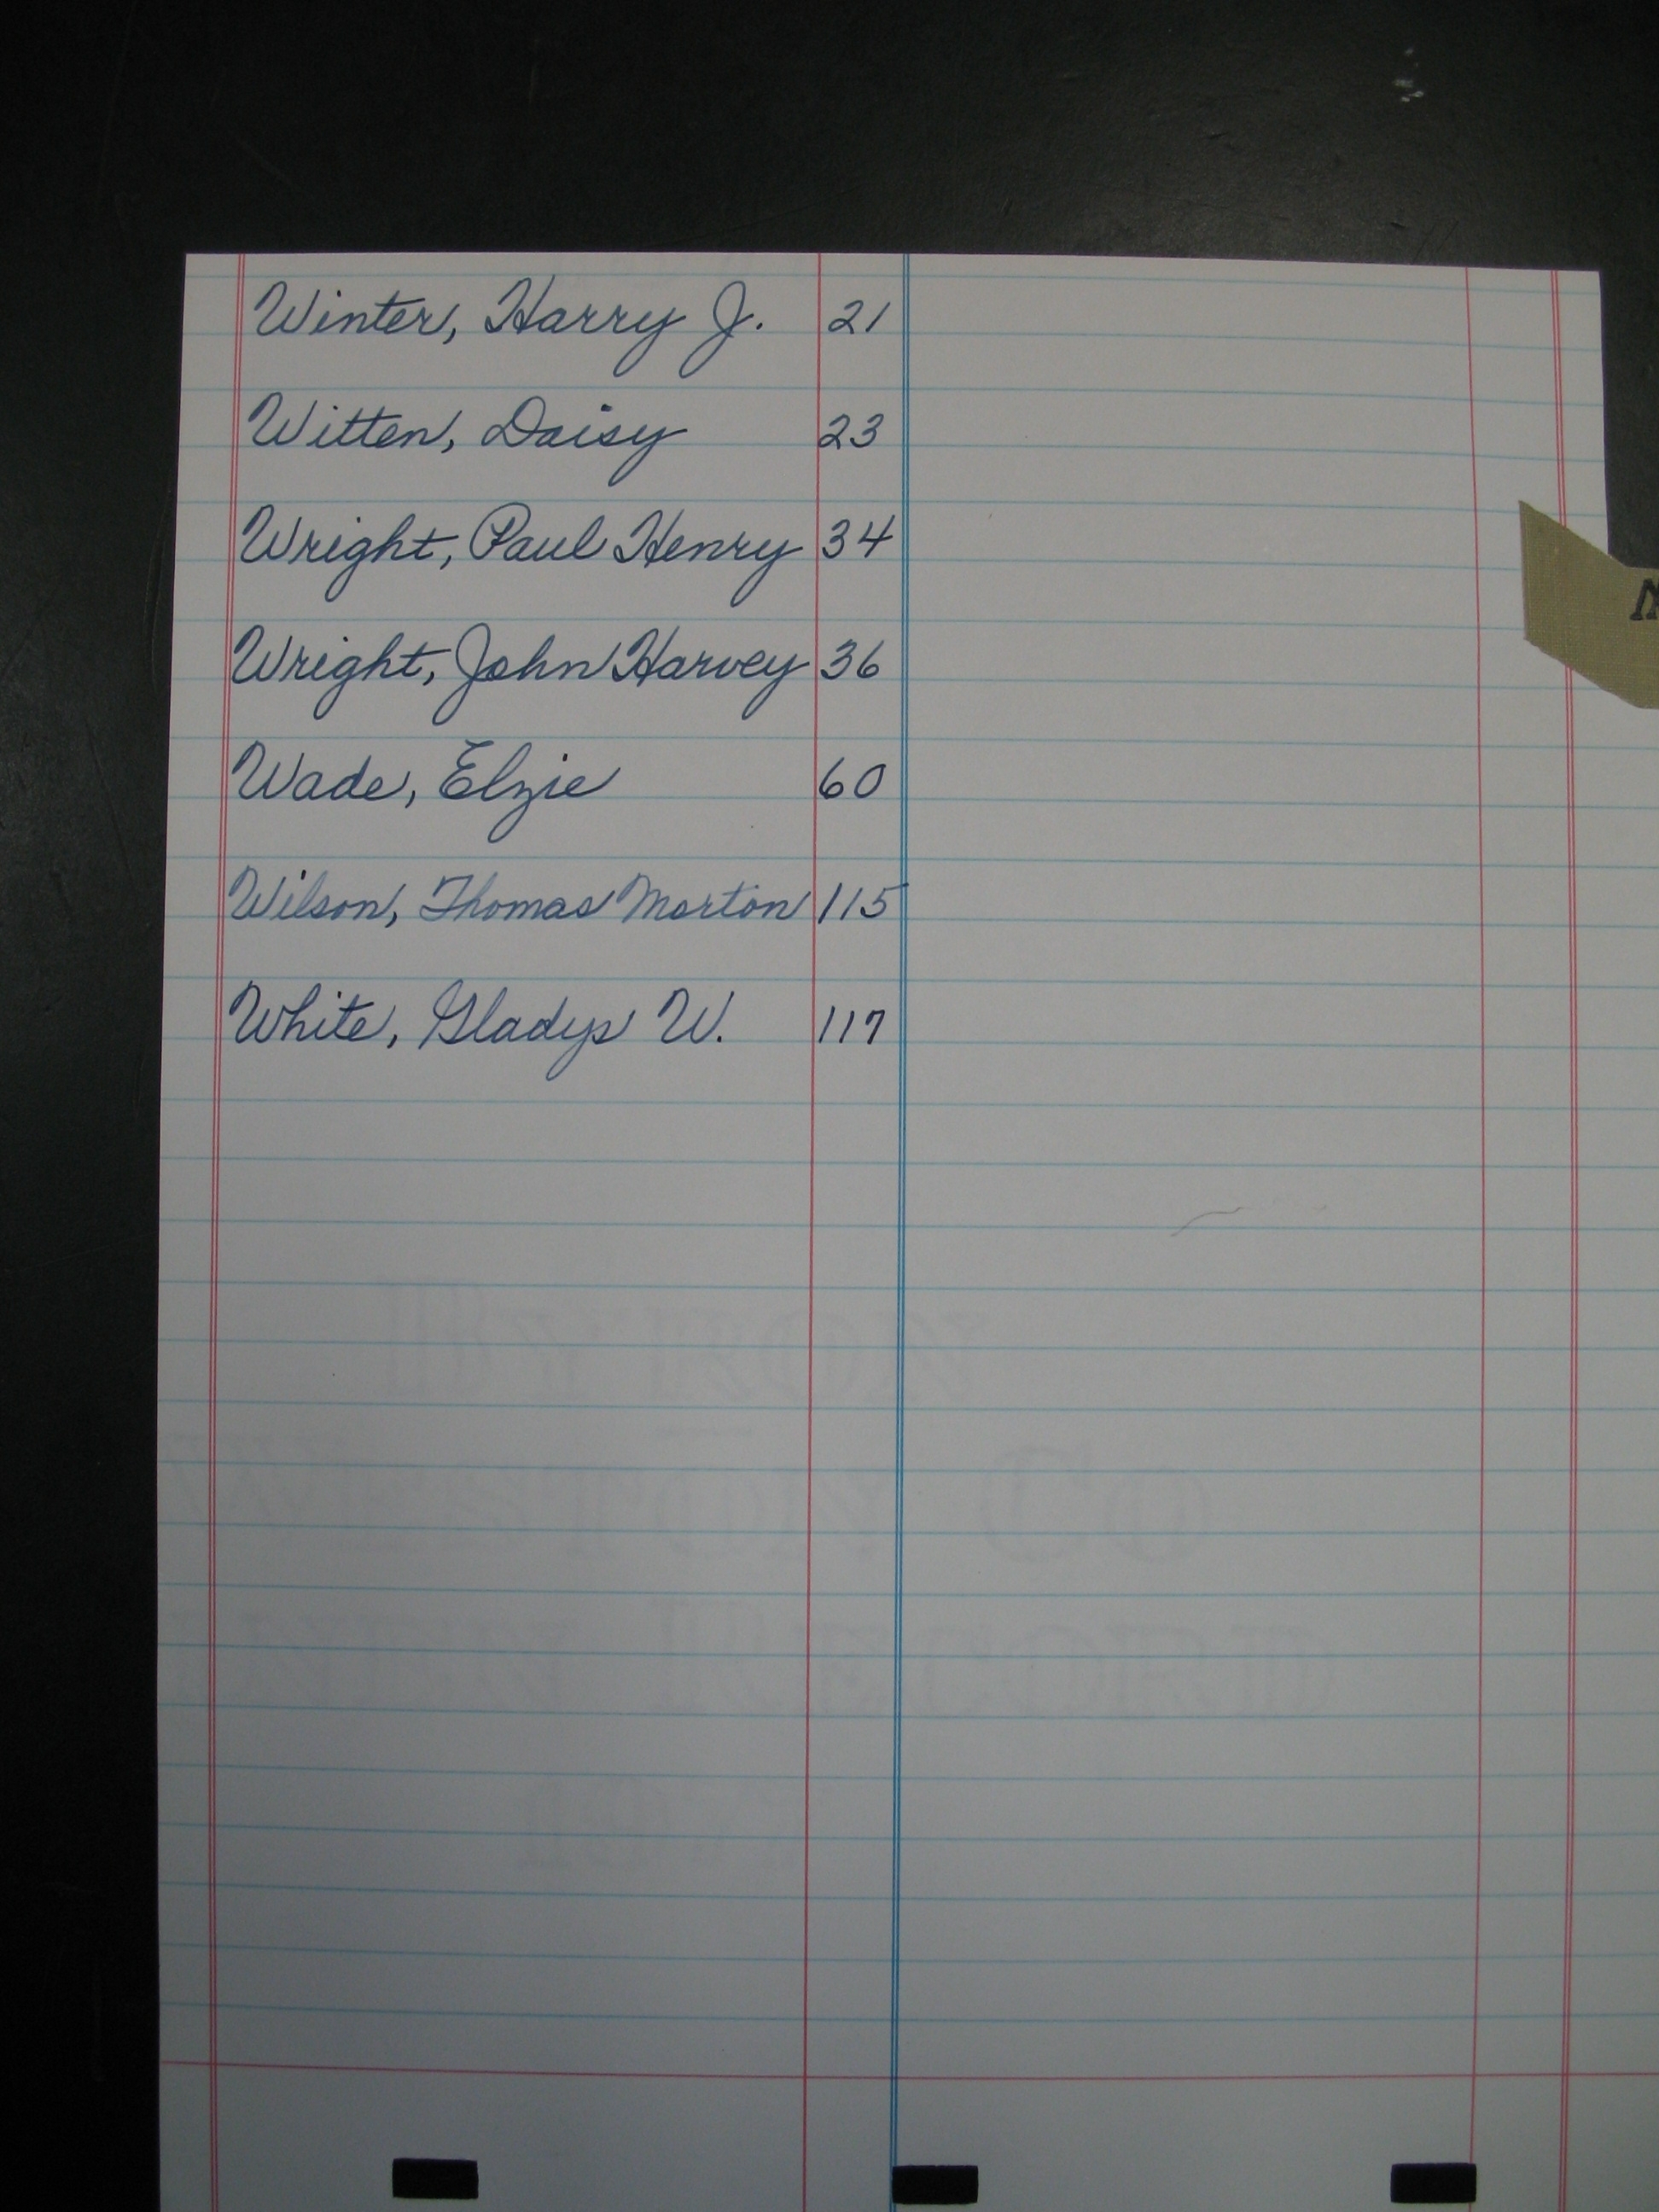 Winter, Harry J. 21
Witten, Daisy 23
Wright, Paul Henry 34
Wright, John Harvey 36
Wade, Elzie 60
Wilson, Thomas Morton 115
White, Gladys W. 117